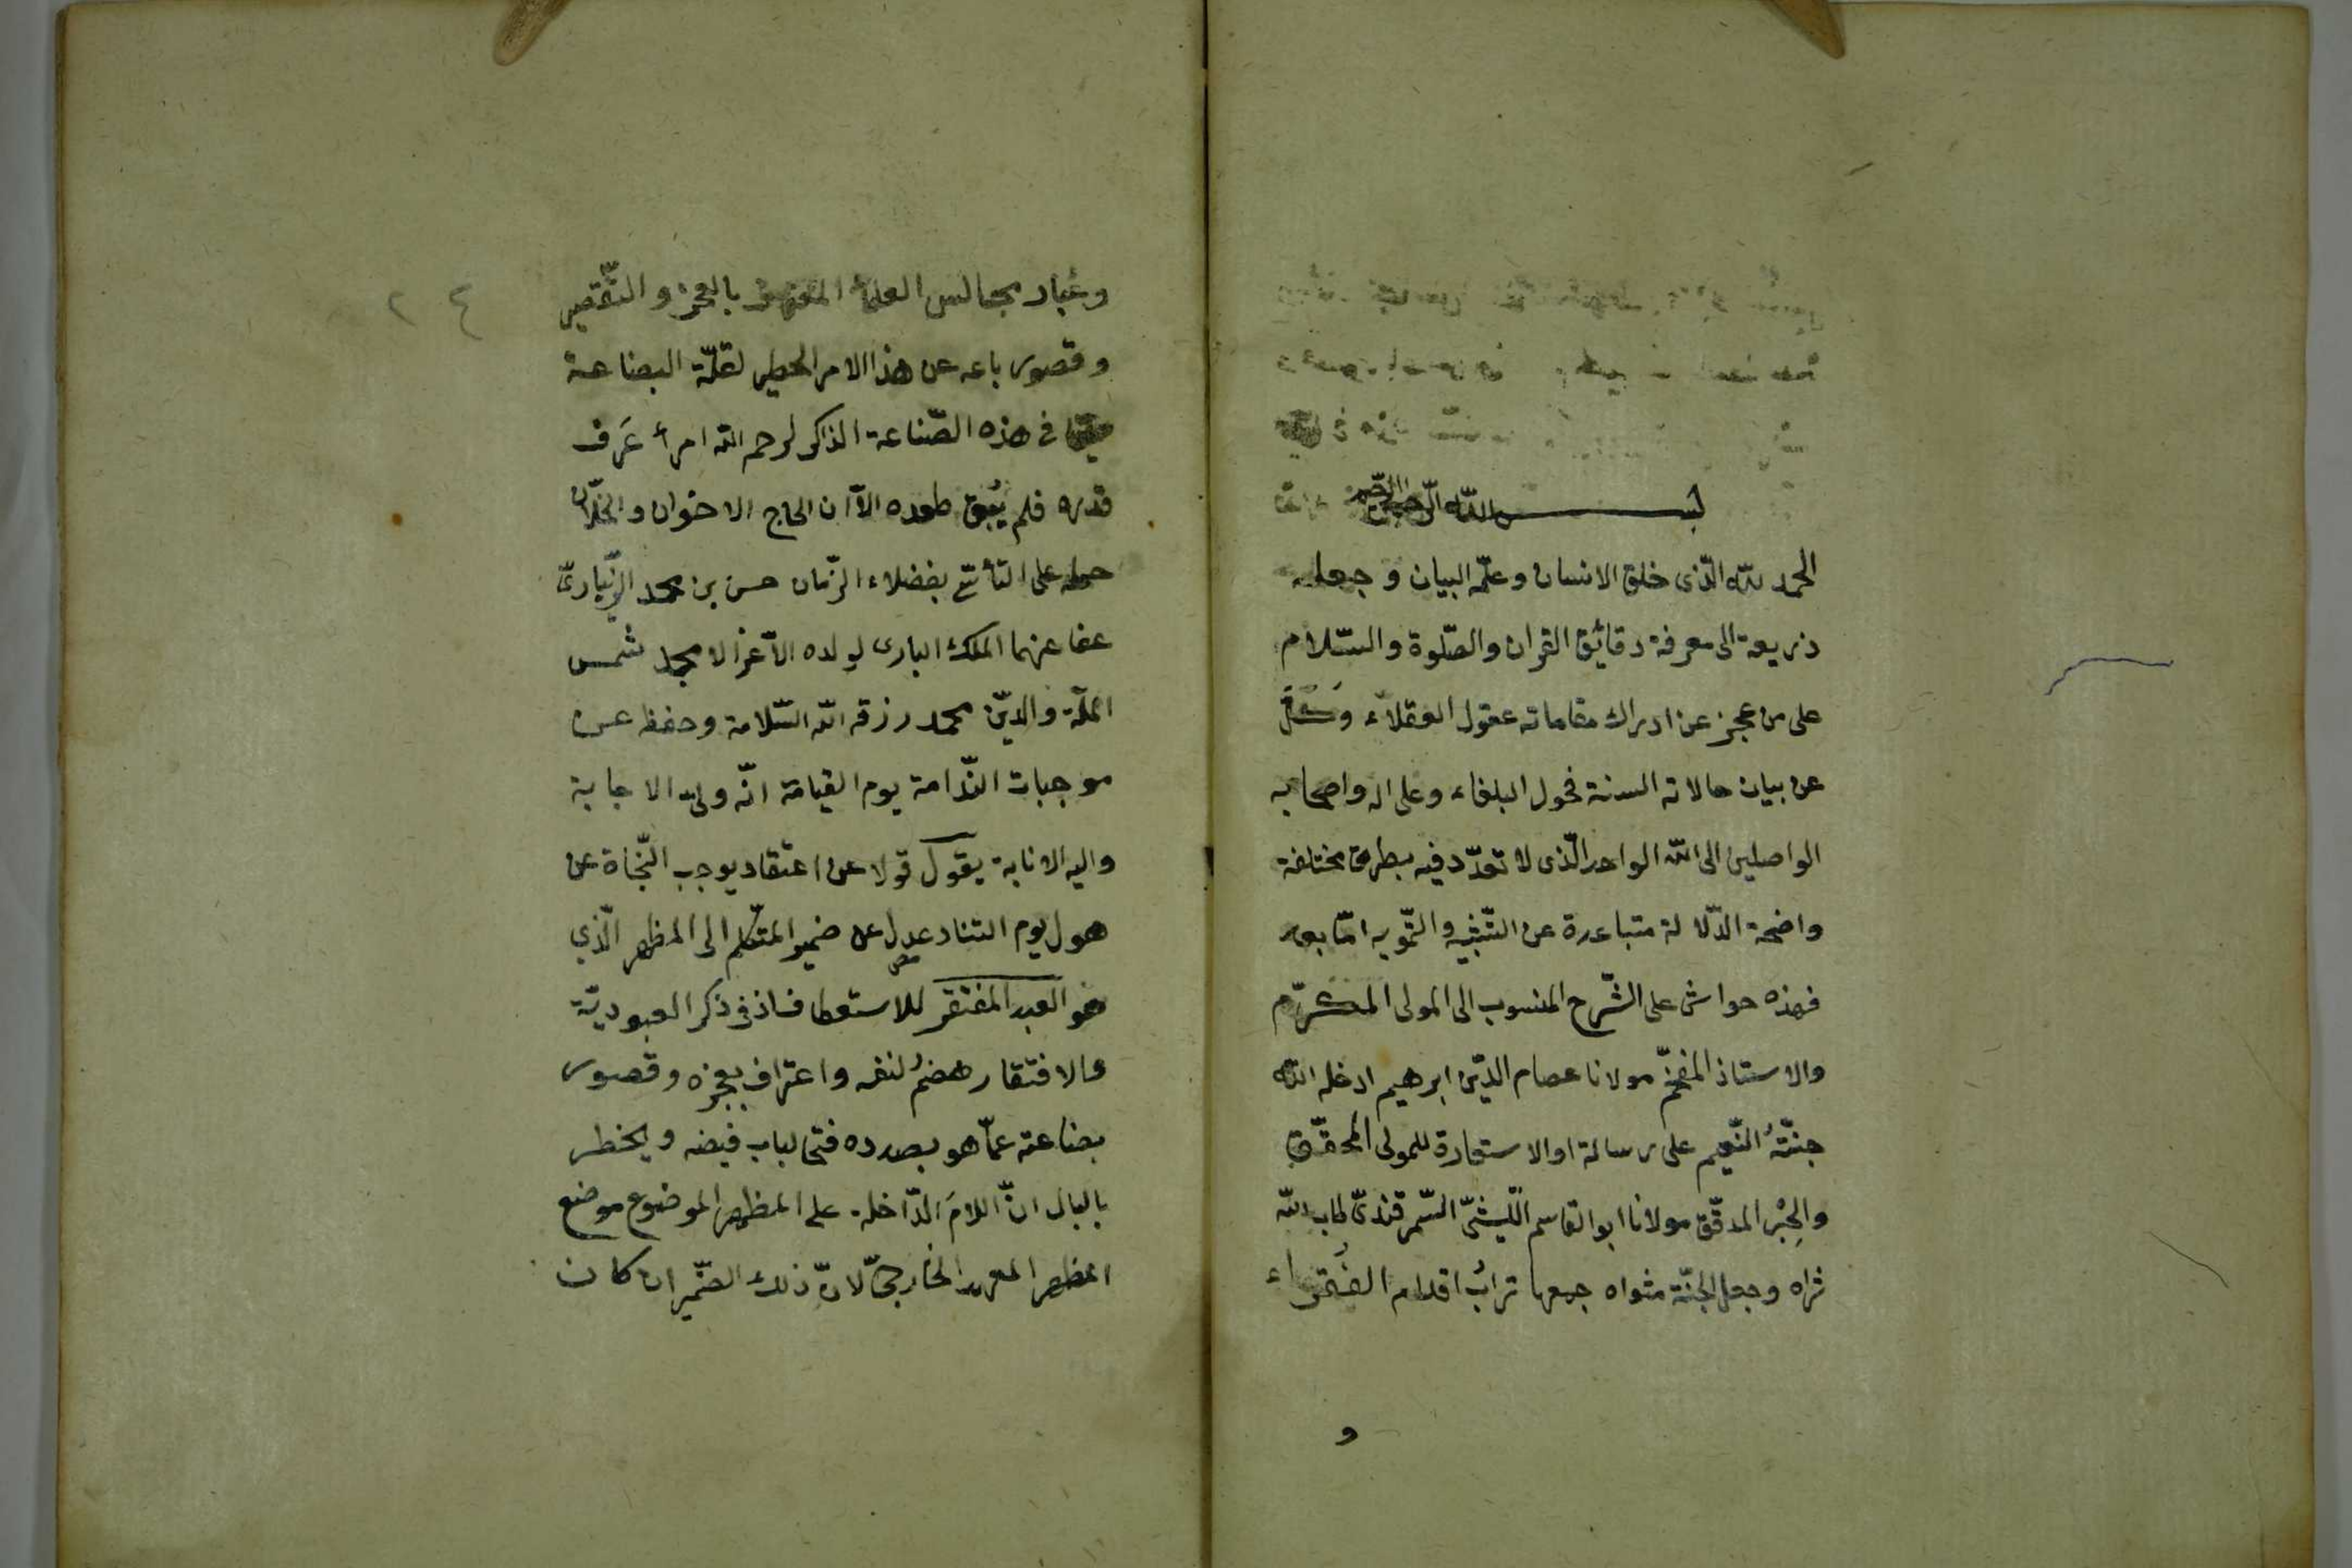 بسم الله الرحمن الرحيم
الحمد لله الّذى خلق الانسان وعلّمه البيان وجعله
ذريعة الى معرفة دقائق القران والصّلوة والسّلام
على من عجز عن ادراك مقاماته عقول العقلاء وكَلَّ
عن بيان حالاته السنية فحول البلغاء وعلى اله واصحابه
الواصلين الى الله الواحد الّذى لا تعدّد فيه بطرق مختلفة
واضحة الدّلالة متباعدة عن التّشبيه والتّمويه امّا بعد
فهذه حواش على الشّرح المنسوب الى المولى المكرّم
والاستاذ المفخّم مولانا عصام الدّين ابرهيم ادخله الله
جنّتهُ النّعيم على رسالة او الاستعارة للمولى المحقّق
والحِبْر المدقّق مولانا ابو القاسم اللّيثىّ السّمرقندىّ طاب الله
ثراه وجعل الجنّة مثواه جمعها ترابُ اقدام الفُقراء
و
٢٤
وغبار مجالس العلماء بالعجز والتّقصير
وقصور باعه عن هذا الامر الخطير لقلّة البضاعة
فى هذه الصّناعة الذاكر لرحم الله امرأ عَرَف
قدره فلم طوره الّا ان الحاح الاخوان والخلّان
حمله على التأسّى بفضلاء الزّمان حسن بن محمد الزّيبارىّ
عفا عنهما الملك البارى لولده الاَعزّ الامجد شمس
الملّة والدّين محمد رزقه الله السّلامة وحفظه عن
موجبات النّدامة يوم القيامة انّه ولىّ الاجابة
واليه الانابة يقول قولا عن اعتقاد يوجب النّجاة عن
هول يوم التناد عدل عن ضمير المتكلّم الى المظهر الّذي
هو العبد المفتقر للاستعطاف اذ فى ذكر العبوديّة
والافتقار هضمٌ لنفسه واعتراف بعجزه وقصور
بضاعته عمّا هو بصدده فتحا لباب فيضه ويخطر
بالبال انّ اللامَ الدّاخلة على المظهر الموضوع موضع
المظهر المعهد الخارجىّ لانّ ذلك الضّمير ان كان